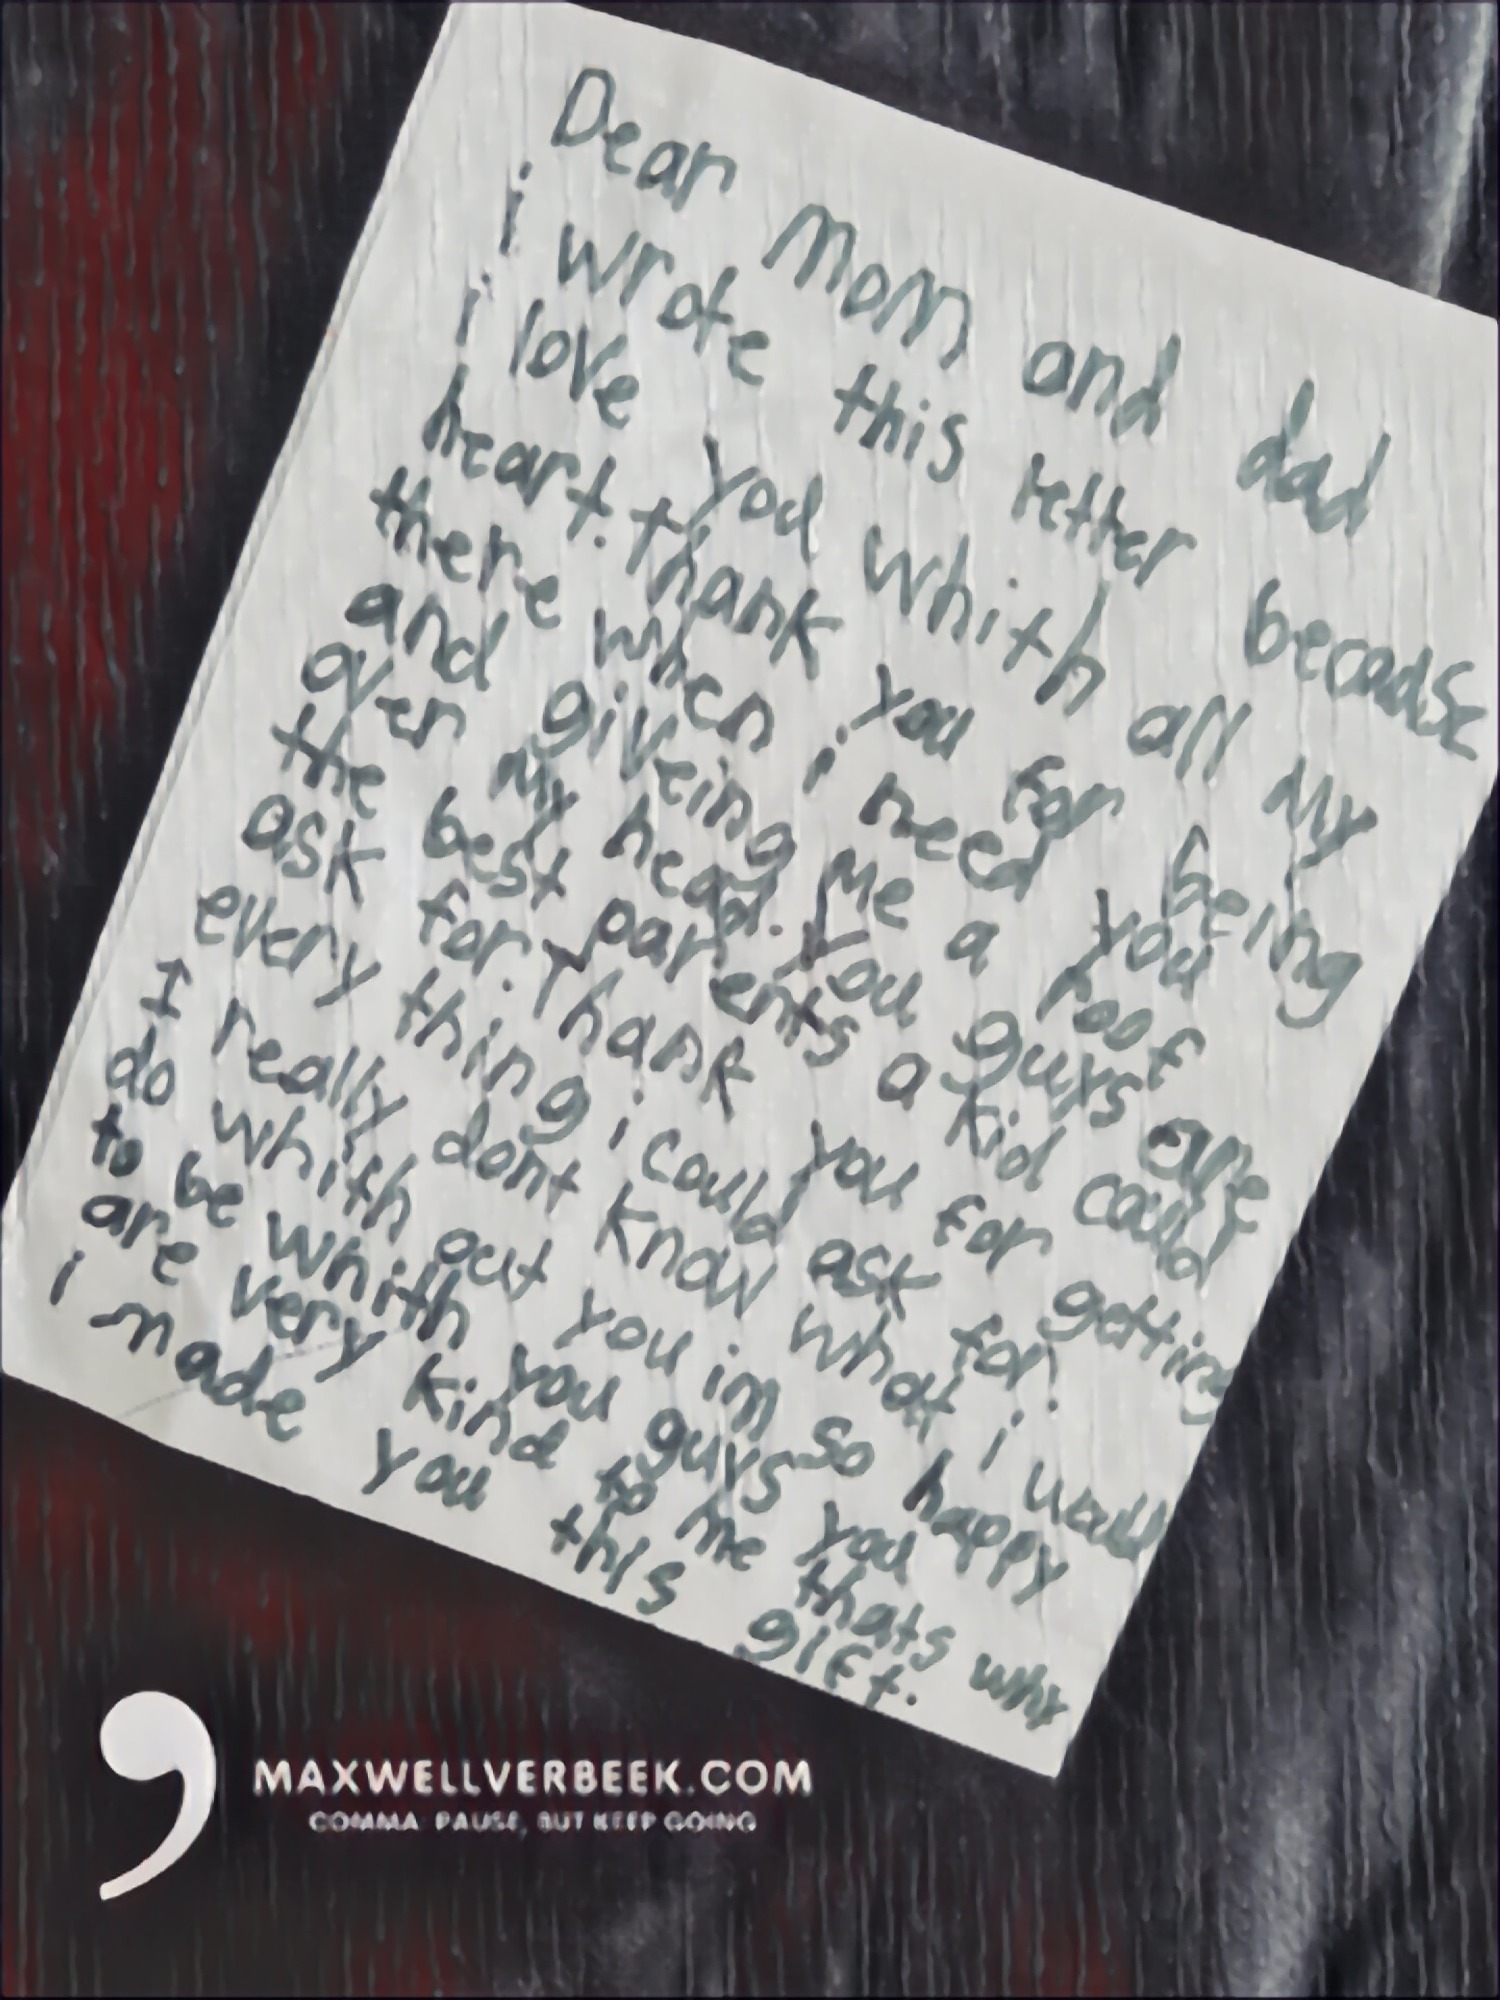 Dear Mom and dad
i wrote this letter becaduse
i love you whith all My
heart. thank you for being
there when i need you
and giveing Me a roof
over My head. You guys are
the best parents a kid could
ask for. Thank you for getting
every thing i could ask for.
I really dont know what i would
do whith out you im so happy
to be whith you guys you
are very kind to Me thats why
i made you this gift.
MAXWELLVERBEEK.COM
COMMA: PAUSE, BUT KEEP GOING